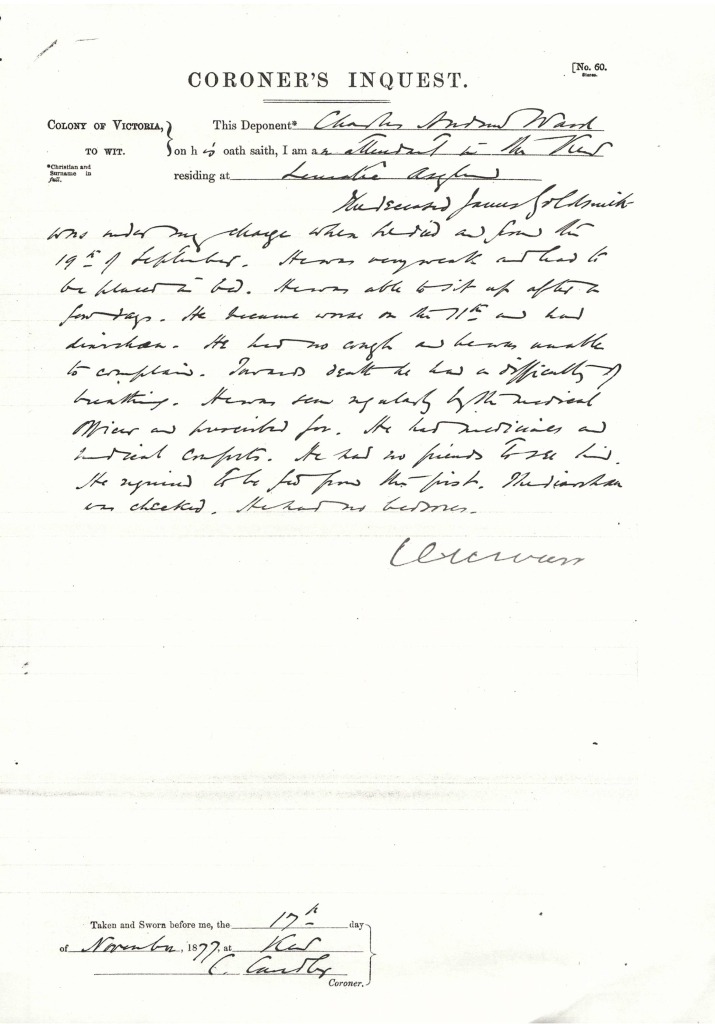 [No. 60.
Stores.
CORONER'S INQUEST.
COLONY OF VICTORIA, } This Deponent* Charles Andrew Ward
TO WIT. } on his oath saith, I am an attendant in the Kew
*Christian and Surname in full.
residing at Lunatic Asylum
The deceased James Goldsmith
was under my charge when he died and from the
19th of September. He was very weak and had to
be placed in bed. He was able to sit up after a
few days. He became worse on the 11th and had
diarrhœa. He had no cough and he was unable
to complain. Towards death he had a difficulty of
breathing. He was seen regularly by the medical
Officer and prescribed for. He had medicines and
medical comforts. He had no friends to see him.
He required to be fed from the first. The diarrhœa
was checked. He had no bedsores.
Taken and Sworn before me, the 17th day
of November, 1877, at Kew
C. Candler
Coroner.